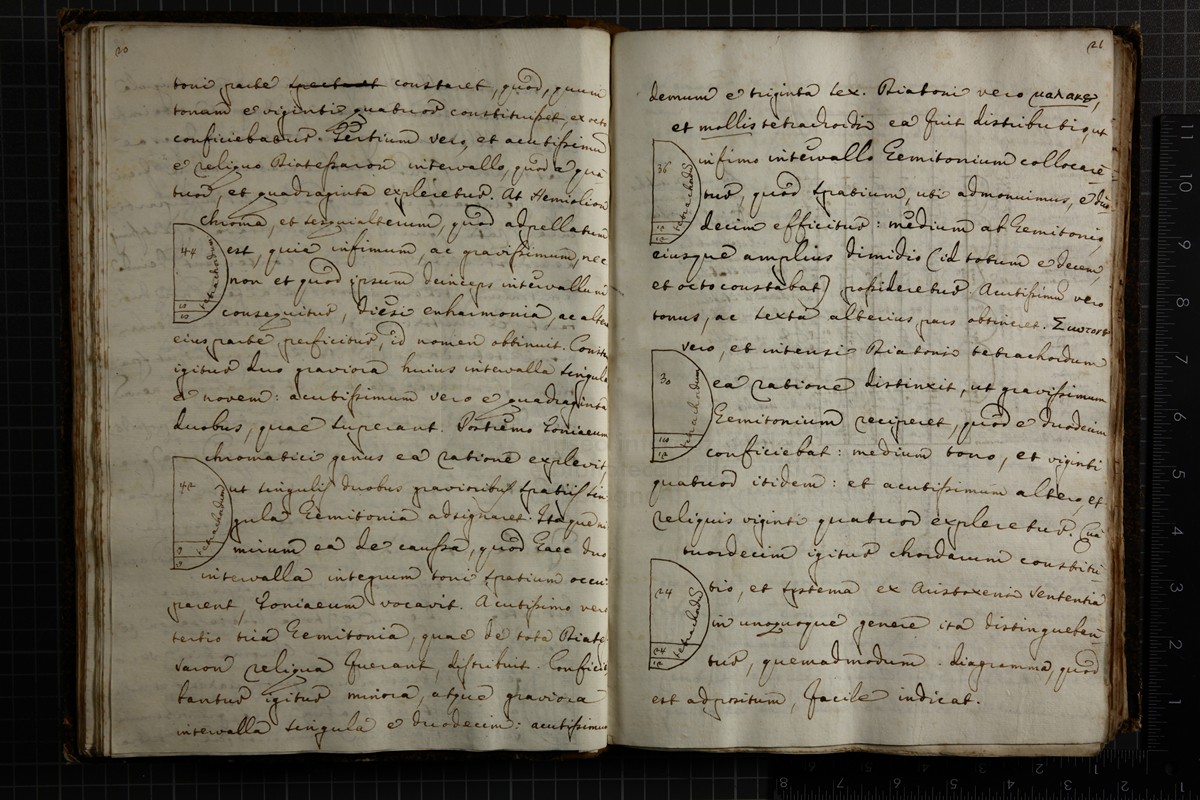 20
toni parte spectaret constaret, quod, quum
tonum e viginti quatuor constituisset, ex octo
conficiebatur. Tertium vero, et acutissimum
e reliquo Diatessaron intervallo, quod e qua
tuor, et quadraginta expleretur. At Hemiolion
chroma, et sesquialterum, quod adpellatum
est, quia infimum, ac gravissimum, nec
non et quod ipsum deinceps intervallum
consequitur, diesi enharmonia, ac alte
eius parte perficitur, id nomen obtinuit. Const
igitur duo graviora huius intervalla singula
e novem: acutissimum vero e quadraginta
duobus, quae superant. Postremo Toniaeum
chromatici genus ea ratione explevit,
ut singulis duobus gravioribus spatiis sin
gula Hemitonia adsignaret. Itaque ni
mirum ea de caussa, quod haec duo
intervalla integrum toni spatium occu
parent, Toniaeum vocavit. Acutissimo vero
tertio tria Hemitonia, quae de toto Diates
saron reliqua fuerant, distribuit. Confici
bantur igitur minora, atque graviora
intervalla singula e duodecim: acutissimum
44
tetrachordum
42
tetrachordum
21
demum e triginta sex. Diatoni vero μαλακȣ,
et mollis tetrachordi ea fuit distributio, ut
infimo intervallo Hemitonium collocare
tur, quod spatium, uti admonuimus, e duo
decim efficitur: medium ab Hemitonio,
eiusque amplius dimidio (id totum e decem,
et octo constabat) possideretur. Acutissimum vero
tonus, ac sexta alterius pars obtineret. Συντονȣ
vero, et intensi Diatoni tetrachordum
ea ratione distinxit, ut gravissimum
Hemitonium reciperet, quod e duodecim
conficiebat: medium tono, et viginti
quatuor itidem: et acutissimum altero, et
reliquis viginti quatuor expleretur. Qua
tuordecim igitur chordarum constitu
tio, et systema ex Aristoxeni sententia
in unoquoque genere ita distingueban
tur, quemadmodum diagramma, quod
est adpositum, facile indicat.
36
tetrachordum
30
tetrachordum
24
24
12
tetrachordum